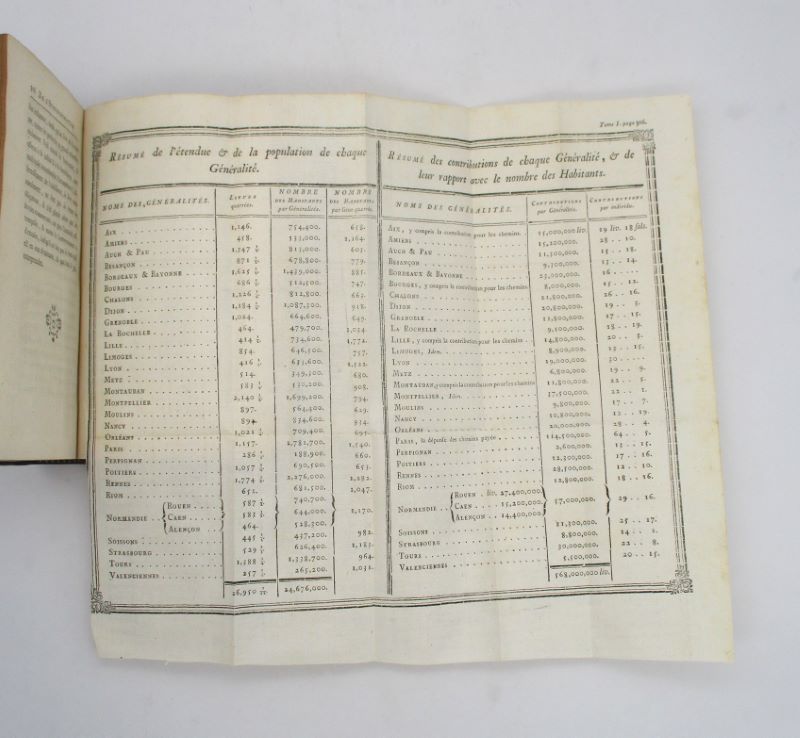 Tome I. page 306.
RÉSUMÉ de l'étendue & de la population de chaque
Généralité.
NOMS DES GÉNÉRALITÉS. LIEUES quarrées. NOMBRE DES HABITANS par Généralités. NOMBRE DES HABITANS par lieue quarrée.
AIX 1,146. 754,400. 658.
AMIENS 458. 533,000. 1,164.
AUCH & PAU 1,347 813,000. 603.
BESANÇON 871 678,800. 779.
BORDEAUX & BAYONNE 1,625 1,439,000. 885.
BOURGES 686 512,500. 747.
CHALONS 1,226 812,800. 663.
DIJON 1,184 1,087,300. 918.
GRENOBLE 1,024. 664,600. 649.
LA ROCHELLE 464. 479,700. 1,034.
LILLE 414 734,600. 1,772.
LIMOGES 854. 646,500. 757.
LYON 416 633,600. 1,522.
METZ 514. 349,300. 680.
MONTAUBAN 583 530,200. 908.
MONTPELLIER 2,140 1,699,200. 794.
MOULINS 897. 564,400. 629.
NANCY 894. 834,600. 934.
ORLÉANS 1,021 709,400. 695.
PARIS 1,157. 1,781,700. 1,540.
PERPIGNAN 286 188,900. 660.
POITIERS 1,057 690,500. 653.
RENNES 1,774 2,276,000. 1,282.
RIOM 651. 681,500. 1,047.
NORMANDIE ROUEN 587 740,700.
CAEN 583 644,000. 1,170.
ALENÇON 464. 528,300.
SOISSONS 445 437,200. 982.
STRASBOURG 529 626,400. 1,183.
TOURS 1,388 1,338,700. 964.
VALENCIENNES 257 265,200. 1,031.
26,950 24,676,000.
RÉSUMÉ des contributions de chaque Généralité, & de
leur rapport avec le nombre des Habitants.
NOMS DES GÉNÉRALITÉS. CONTRIBUTIONS par Généralités. CONTRIBUTIONS par individu.
AIX, y compris la contribution pour les chemins. 15,000,000 liv. 19 liv. 18 sols.
AMIENS 15,200,000. 28 .. 10.
AUCH & PAU 11,300,000. 13 .. 18.
BESANÇON 9,300,000. 13 .. 14.
BORDEAUX & BAYONNE 23,000,000. 16
BOURGES, y compris la contribution pour les chemins 8,000,000. 15 .. 12.
CHALONS 21,800,000. 26 .. 16.
DIJON 20,800,000. 19 .. 3.
GRENOBLE 11,800,000. 17 .. 15.
LA ROCHELLE 9,100,000. 18 .. 19.
LILLE, y compris la contribution pour les chemins 14,800,000. 20 .. 3.
LIMOGES, Idem. 8,900,000. 13 .. 15.
LYON 19,000,000. 30
METZ 6,800,000. 19 .. 9.
MONTAUBAN, y compris la contribution pour les chemins 11,800,000. 22 .. 5.
MONTPELLIER, Idem. 37,500,000. 22 .. 1.
MOULINS 9,800,000. 17 .. 7.
NANCY 10,800,000. 12 .. 19.
ORLÉANS 20,000,000. 28 .. 4.
PARIS, la dépense des chemins payée 114,500,000. 64 .. 5.
PERPIGNAN 2,600,000. 13 .. 15.
POITIERS 12,300,000. 17 .. 16.
RENNES 28,500,000. 12 .. 10.
RIOM 12,800,000. 18 .. 16.
NORMANDIE ROUEN liv. 27,400,000.
CAEN 15,200,000. 57,000,000. 29 .. 16.
ALENÇON 14,400,000.
SOISSONS 11,300,000. 25 .. 17.
STRASBOURG 8,800,000. 14 .. 1.
TOURS 30,000,000. 22 .. 8.
VALENCIENNES 5,500,000. 20 .. 15.
568,000,000 liv.